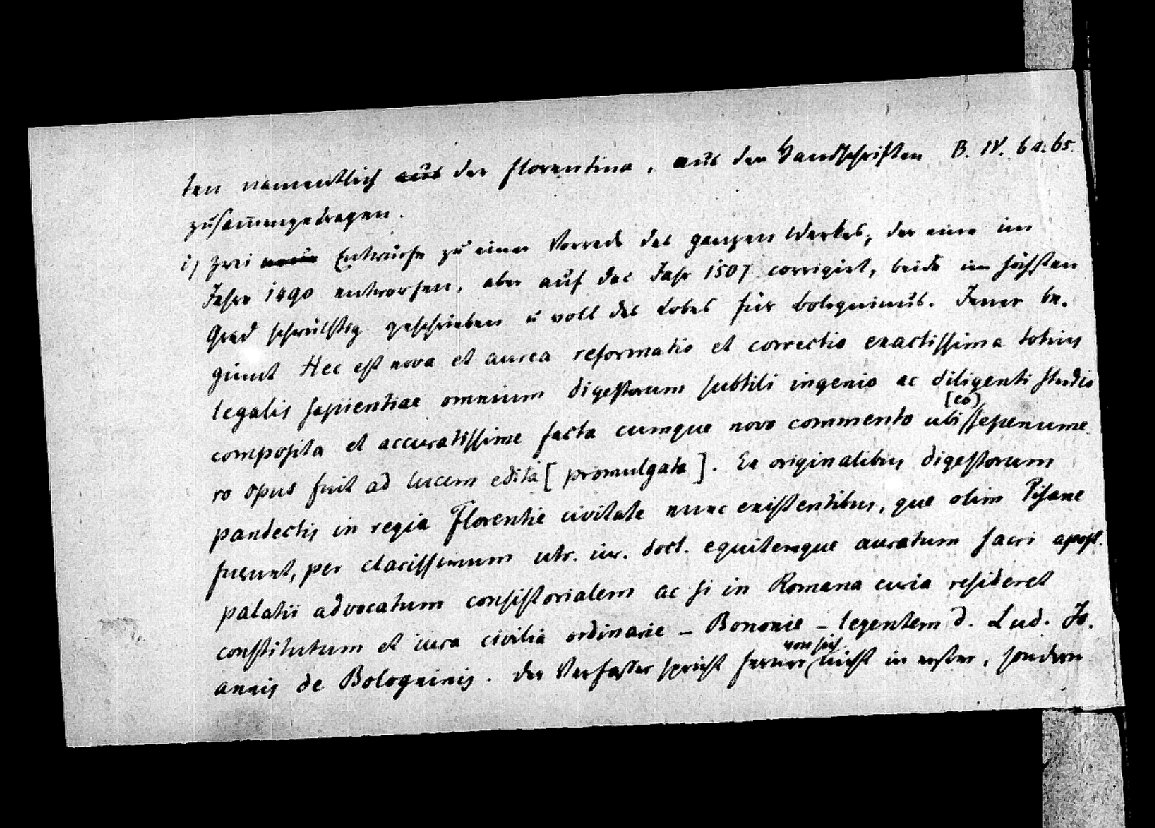 ten namentlich aus der florentina, aus den Handschriften B. IV. 64. 65
zusammengetragen.
i) zwei Entwürfe zu einer Vorrede des ganzen Werkes, der eine im
Jahre 1490 entworfen, aber auf das Jahr 1507 corrigirt, beide im höchsten
Grad schwülstig geschrieben u voll des Lobes für bologninus. Jener be-
ginnt Hec est nova et aurea reformatio et correctio exactissima totius
legalis sapientiae omnium digestorum subtili ingenio ac diligenti studio
composita et accuratissime facta cumque novo commento ubi [eo] sepenume
ro opus fuit ad lucem edita [promulgata]. Ex originalibus digestorum
pandectis in regia Florentie civitate nunc existentibus, que olim Pisane
fuerunt, per clarissimum utr. iur. doct. equitemque auratum sacri apost.
palatii advocatum consistorialem ac si in Romana curia resideret
constitutum et iura civilia ordinarie – Bononie – legentem d. Lud. Jo.
annis de Bologninis. Der Verfasser spricht ferner von sich nicht in erster, sondern